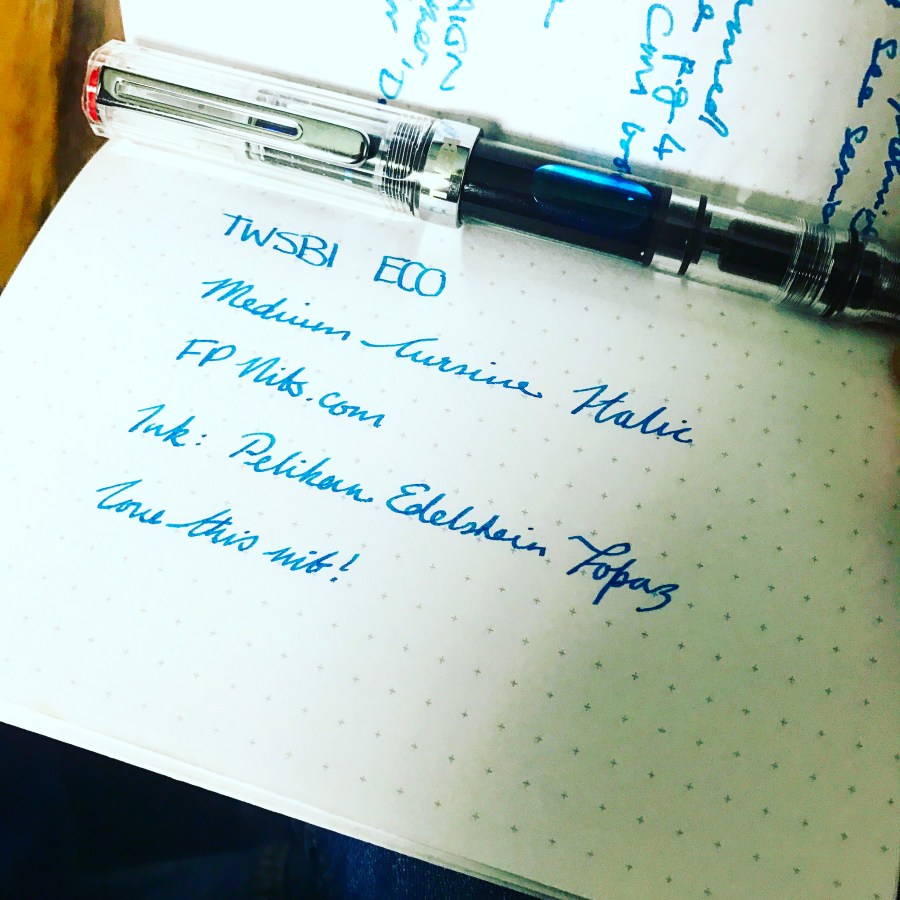 TWSBI ECO
Medium Cursive Italic
FP Nibs.com
Ink: Pelikan Edelstein Topaz
Love this nib!
AIGN
P.O 4
Cm
See